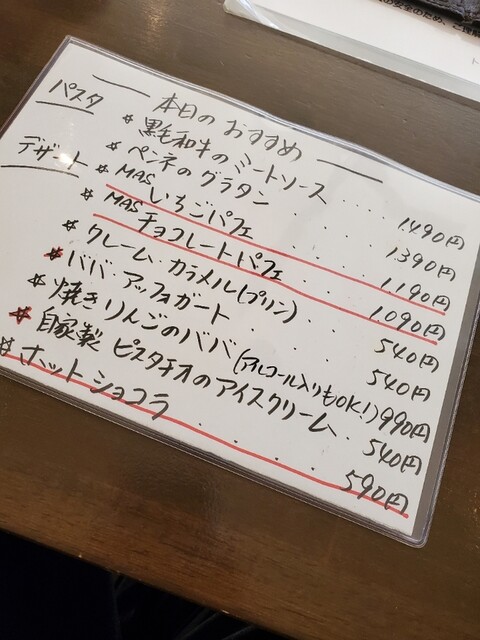 の安全のため、ご
ト
本日のおすすめ
パスタ
* 黒毛和牛のミートソース ････ 1490円
* ペンネのグラタン ････ 1390円
デザート
* MAS いちごパフェ ････ 1190円
* MAS チョコレートパフェ ･･･ 1090円
* クレーム・カラメル(プリン) ･･･ 540円
* ババ・アッフォガート ･･･ 540円
* 焼きりんごのババ(アルコール入りもOK!) 990円
* 自家製 ピスタチオのアイスクリーム ･ 540円
* ホットショコラ ･････ 590円